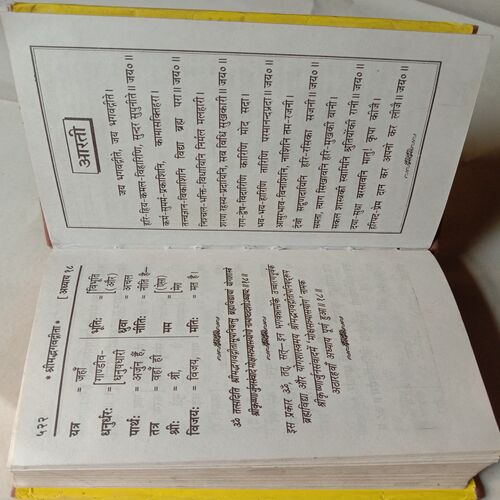 ५२२ * श्रीमद्भगवद्गीता * [ अध्याय १८
यत्र = जहाँ
धनुर्धरः = गाण्डीव-
धनुषधारी
पार्थः = अर्जुन हैं,
तत्र = वहाँ ही
श्रीः = श्री,
विजयः = विजय,
भूतिः = विभूति
(और)
ध्रुवा = अचल
नीतिः = नीति है—
मम = (ऐसा)
मेरा
मतिः = मत है।
ॐ तत्सदिति श्रीमद्भगवद्गीतासूपनिषत्सु ब्रह्मविद्यायां योगशास्त्रे
श्रीकृष्णार्जुनसंवादे मोक्षसन्न्यासयोगो नामाष्टादशोऽध्यायः॥१८॥
इस प्रकार ॐ, तत्, सत्—इन भगवन्नामोंके उच्चारणपूर्वक
ब्रह्मविद्या और योगशास्त्रमय श्रीमद्भगवद्गीतोपनिषद्रूप
श्रीकृष्णार्जुनसंवादमें 'मोक्षसन्न्यासयोग' नामक
अठारहवाँ अध्याय पूर्ण हुआ॥१८॥
आरती
जय भगवद्गीते, जय भगवद्गीते।
हरि-हिय-कमल-विहारिणि, सुन्दर सुपुनीते॥ जय०॥
कर्म-सुमर्म-प्रकाशिनि, कामासक्तिहरा।
तत्त्वज्ञान-विकाशिनि विद्या ब्रह्म परा॥ जय०॥
निश्चल-भक्ति-विधायिनि निर्मल मलहारी।
शरण-रहस्य-प्रदायिनि, सब विधि सुखकारी॥ जय०॥
राग-द्वेष-विदारिणि कारिणि मोद सदा।
भव-भय-हारिणि तारिणि परमानन्दप्रदा॥ जय०॥
आसुरभाव-विनाशिनि, नाशिनि तम-रजनी।
दैवी सद्गुणदायिनि हरि-रसिका सजनी॥ जय०॥
समता, त्याग सिखावनि हरि-मुखकी बानी।
सकल शास्त्रकी स्वामिनि श्रुतियोंकी रानी॥ जय०॥
दया-सुधा बरसावनि मातु! कृपा कीजै।
हरिपद-प्रेम दान कर अपनो कर लीजै॥ जय०॥